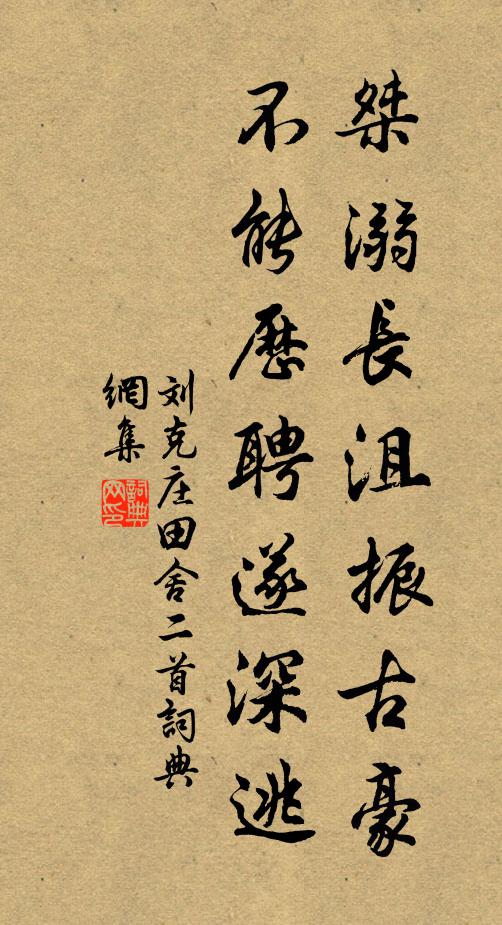 桀溺長沮振古豪
不能歷聘遂深逃
刘克庄田舍二首詞典
網集
詞典網印